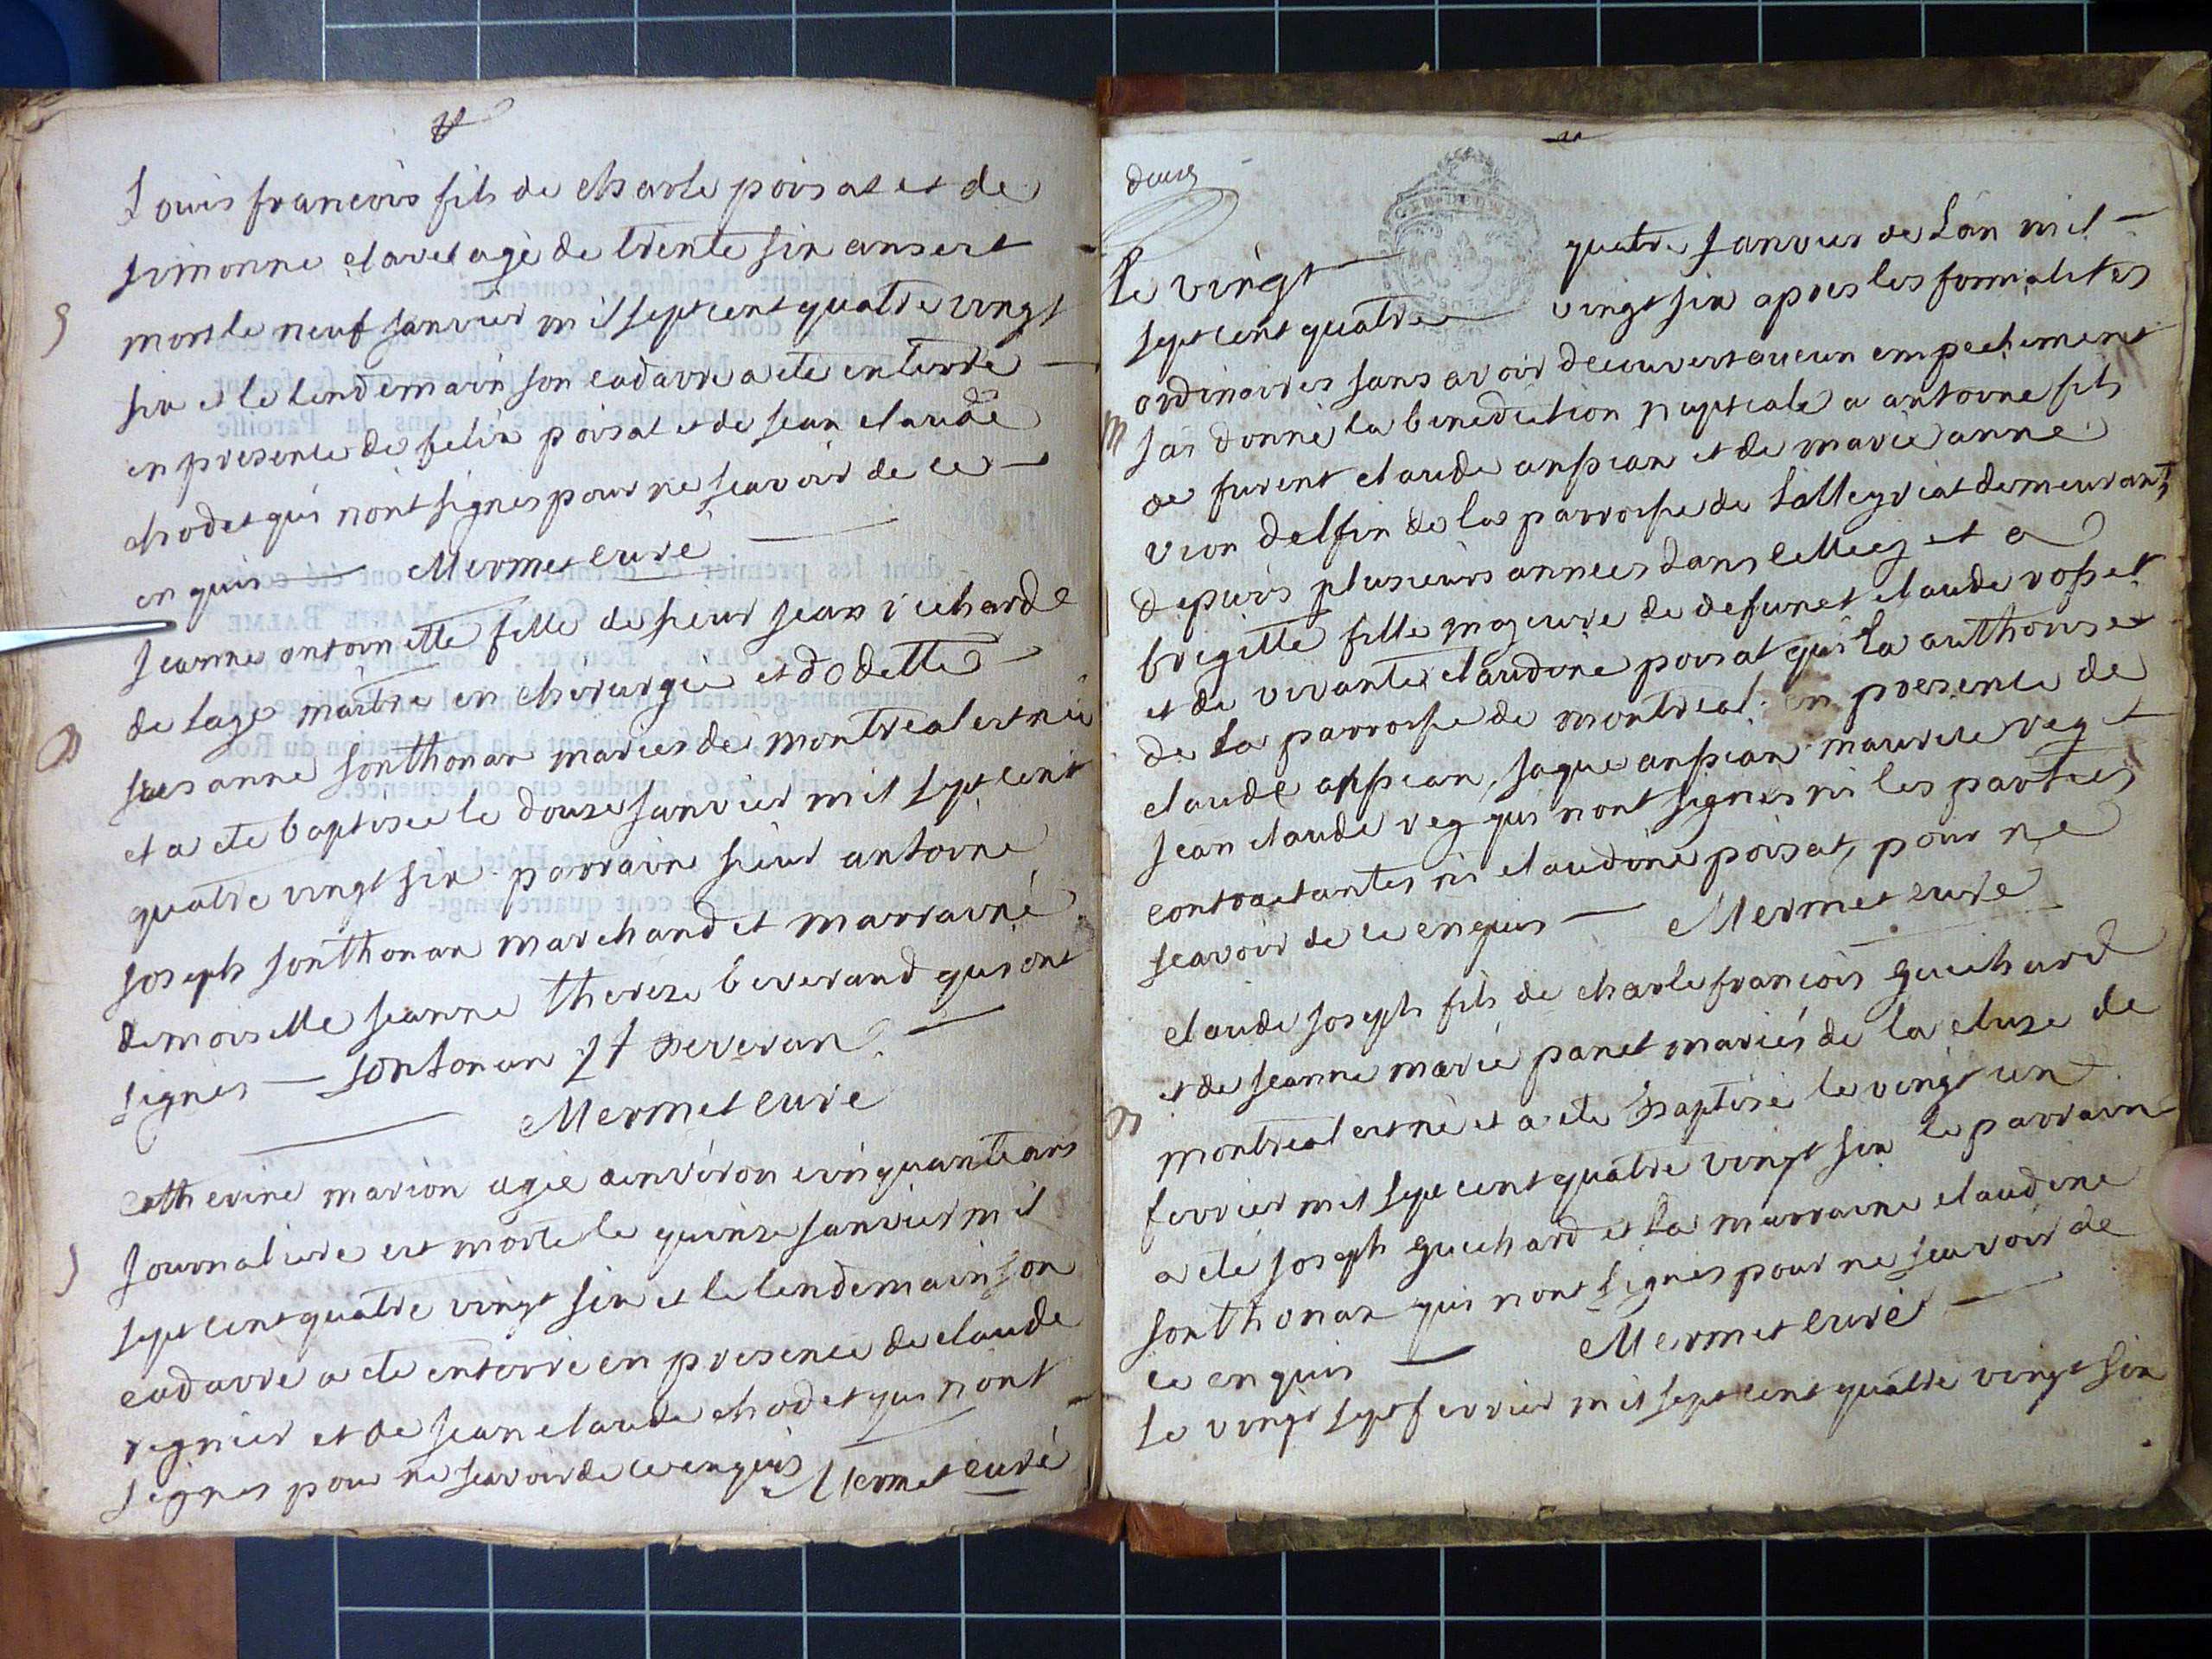 Louis francois fils de charle poisat et de
simonne claret agé de trente six ans est
mort le neuf janvier mil sept cent quatre vingt
six et le lendemain son cadavre a ete enterré
en presence de felix poisat et de jean claude
chodet qui nont signes pour ne scavoir de ce
enquis Mermet curé
S
jeanne antoinette fille de sieur jean richard
de lage maitre en chirurgie et dodette
susanne sonthonax mariés de montreal est née
et a ete baptisée le douze janvier mil sept cent
quatre vingt six parrain sieur antoine
joseph sonthonax marchand et marraine
demoiselle jeanne therese beverand qui ont
signes sontonax jt beveran
Mermet curé
B
Catherine marion agée denviron cinquante ans
journaliere est morte le quinze janvier mil
sept cent quatre vingt six et le lendemain son
cadavre a ete enterré en presence de claude
regnier et de jean claude chodet qui nont
signes pour ne scavoir de ce enquis Mermet curé
S
deux
Le vingt quatre janvier de Lan mil
sept cent quatre vingt six apres les formalites
ordinaires sans avoir decouvert aucun empechement
jai donné la benediction nuptiale a antoine fils
de furent claude anpian et de marie anne
vion delfin de la parroisse de Lalleyriat demeurant
depuis plusieurs annees dans celle cy et a
brigitte fille majeure de defunct claude rosset
et de vivante claudine poisat qui la authorise
de la parroisse de montreal en presence de
claude anpian, jaque anpian maurice rey et
jean claude rey qui nont signes ni les parties
contractantes ni claudine poisat, pour ne
scavoir de ce enquis Mermet curé
M
claude joseph fils de charle francois guichard
et de jeanne marie panet mariés de la cluse de
montreal est né et a ete baptisé le vingt un
fevrier mil sept cent quatre vingt six le parrain
a eté joseph guichard et la marraine claudine
sonthonax qui nont signes pour ne scavoir de
ce enquis Mermet curé
B
Le vingt sept fevrier mil sept cent quatre vingt six